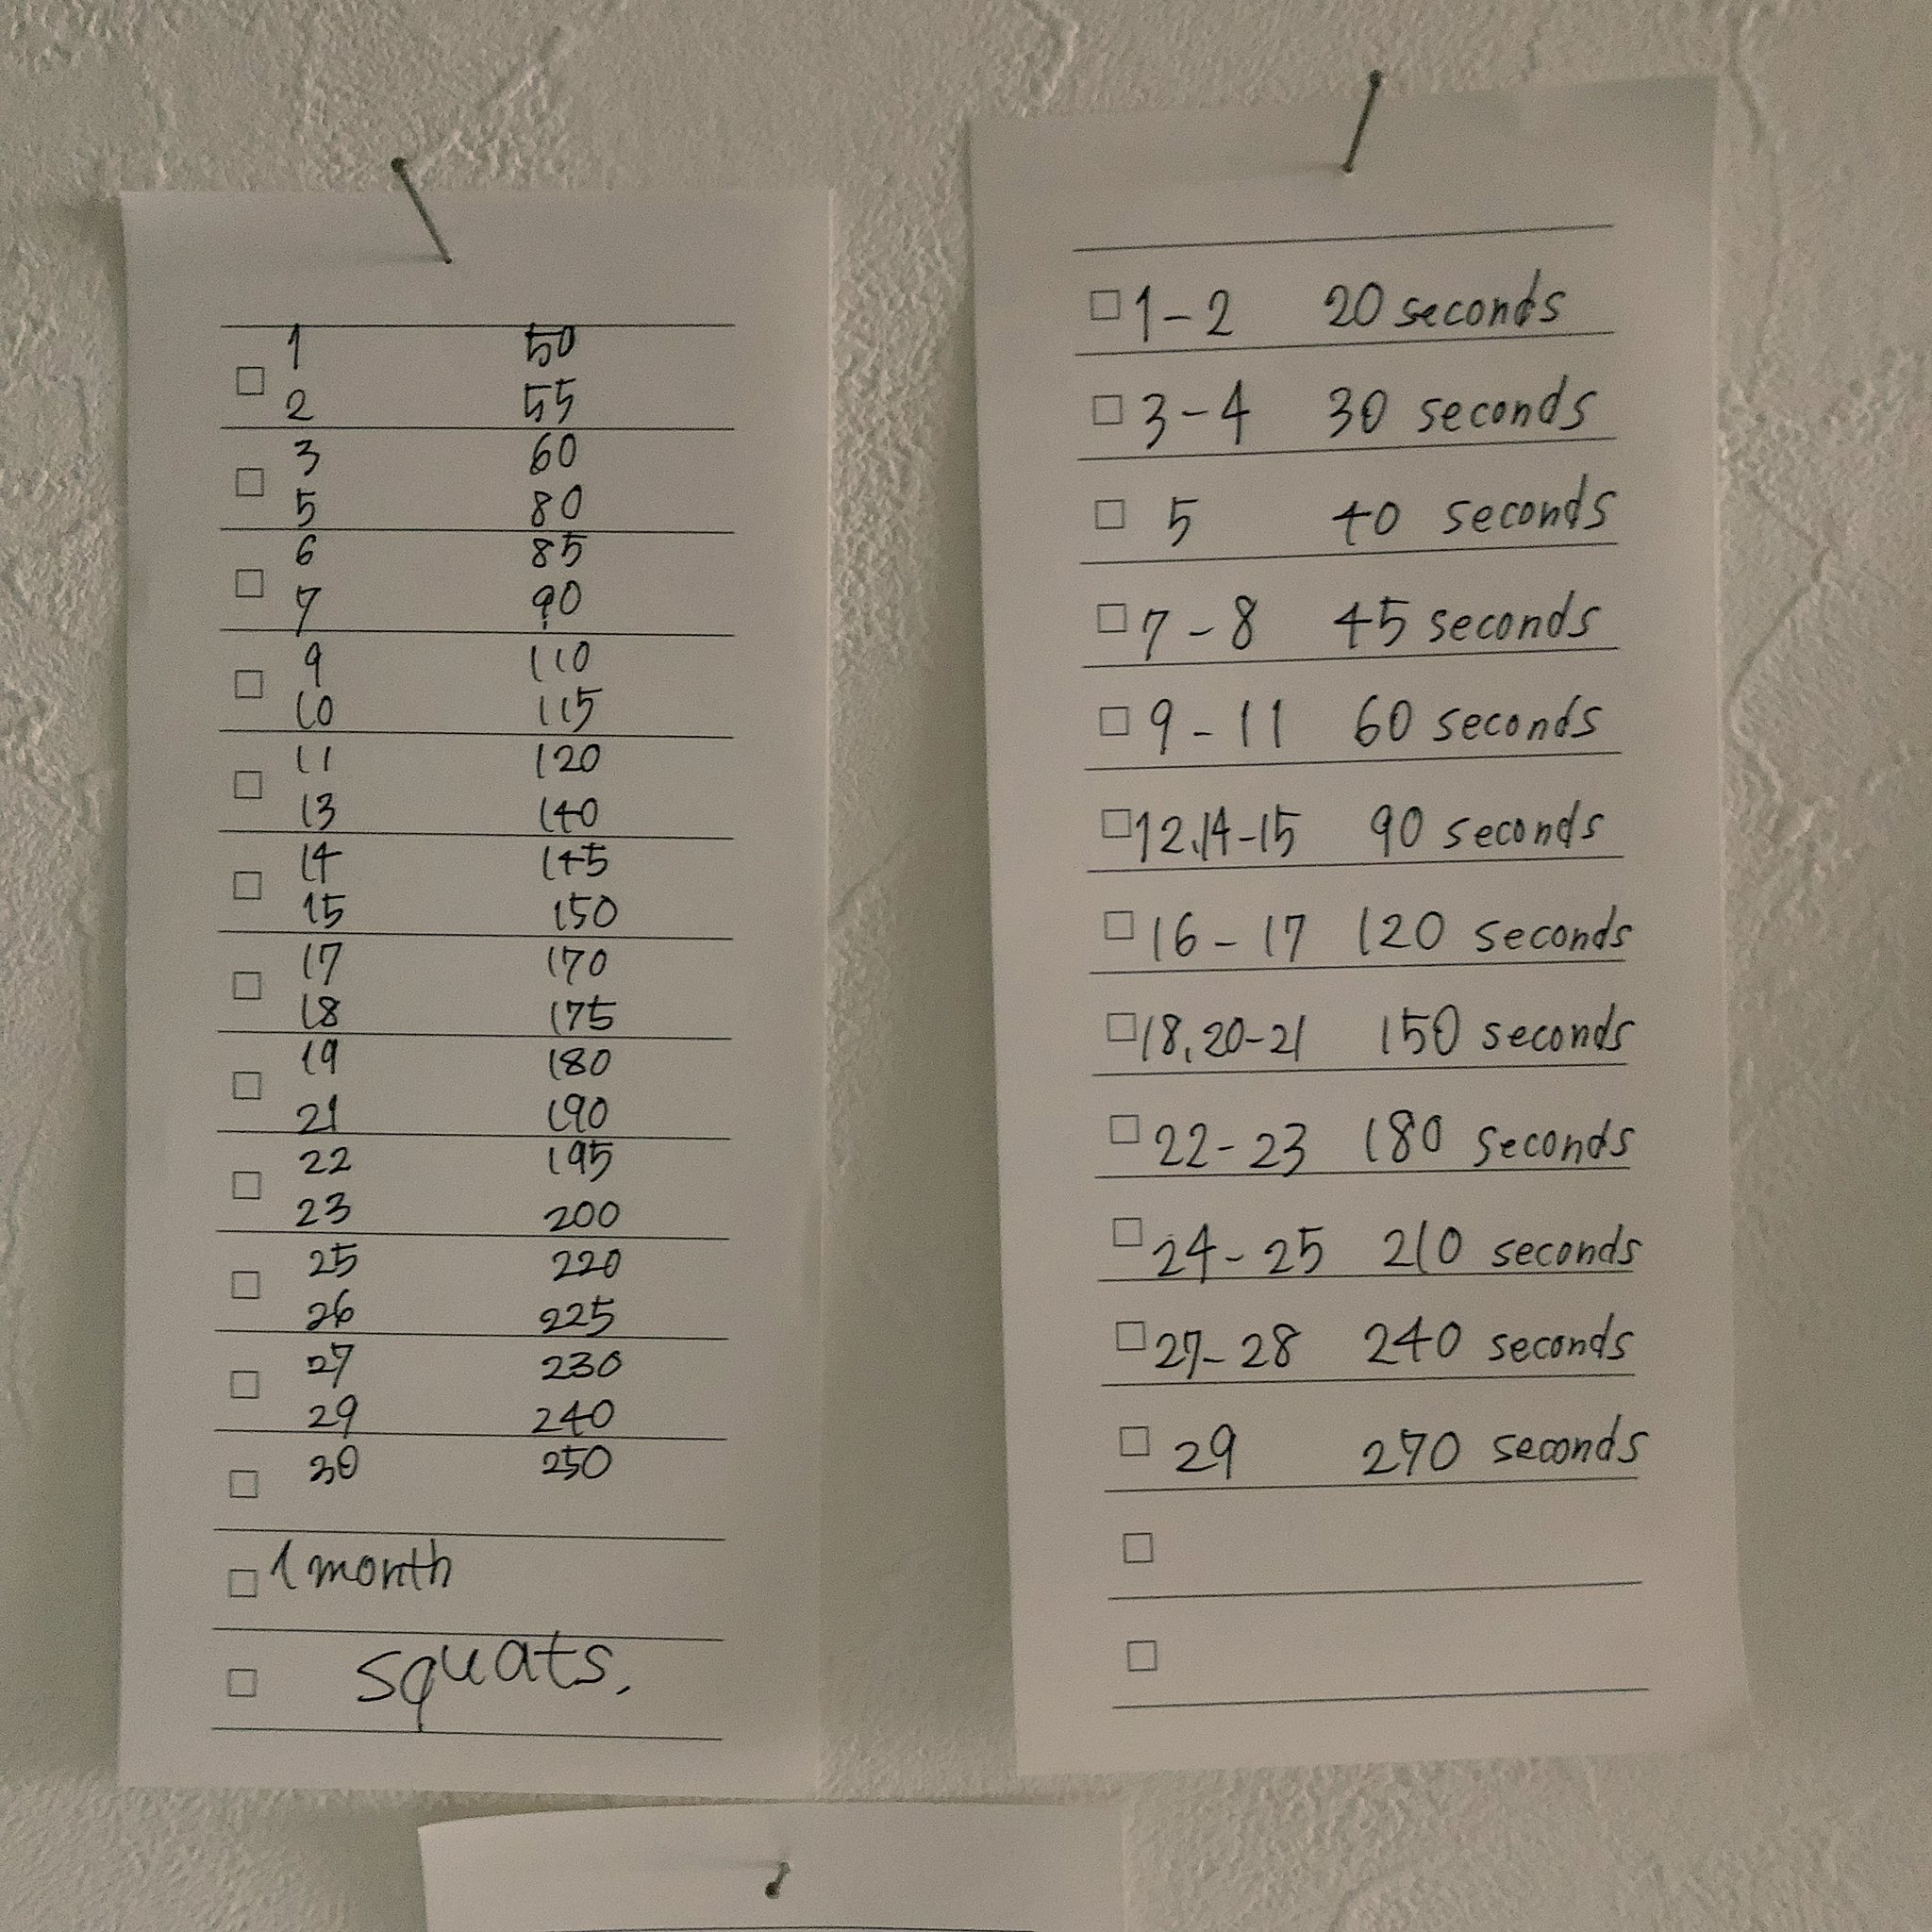 1 50
2 55
3 60
5 80
6 85
7 90
9 110
10 115
11 120
13 140
14 145
15 150
17 170
18 175
19 180
21 190
22 195
23 200
25 220
26 225
27 230
29 240
30 250
1 month
squats.
1-2 20 seconds
3-4 30 seconds
5 40 seconds
7-8 45 seconds
9-11 60 seconds
12,14-15 90 seconds
16-17 120 seconds
18,20-21 150 seconds
22-23 180 seconds
24-25 210 seconds
27-28 240 seconds
29 270 seconds